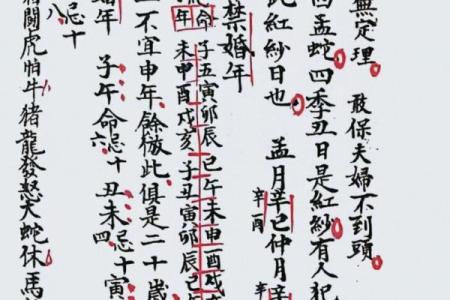 無定理 敢保夫婦不到頭
酉孟蛇四季丑日是紅紗有人犯
此紅紗日也 孟月辛巳仲月辛
辛酉
禁婚年
命 子丑寅卯辰巳午未申酉戌
年 未申酉戌亥子丑寅卯辰巳
不宜申年餘倣此俱是二十歲
婚年 子午命忌十 丑未忌十寅
六 四
忌十
八
鬪虎怕牛 豬龍發怒犬蛇休馬